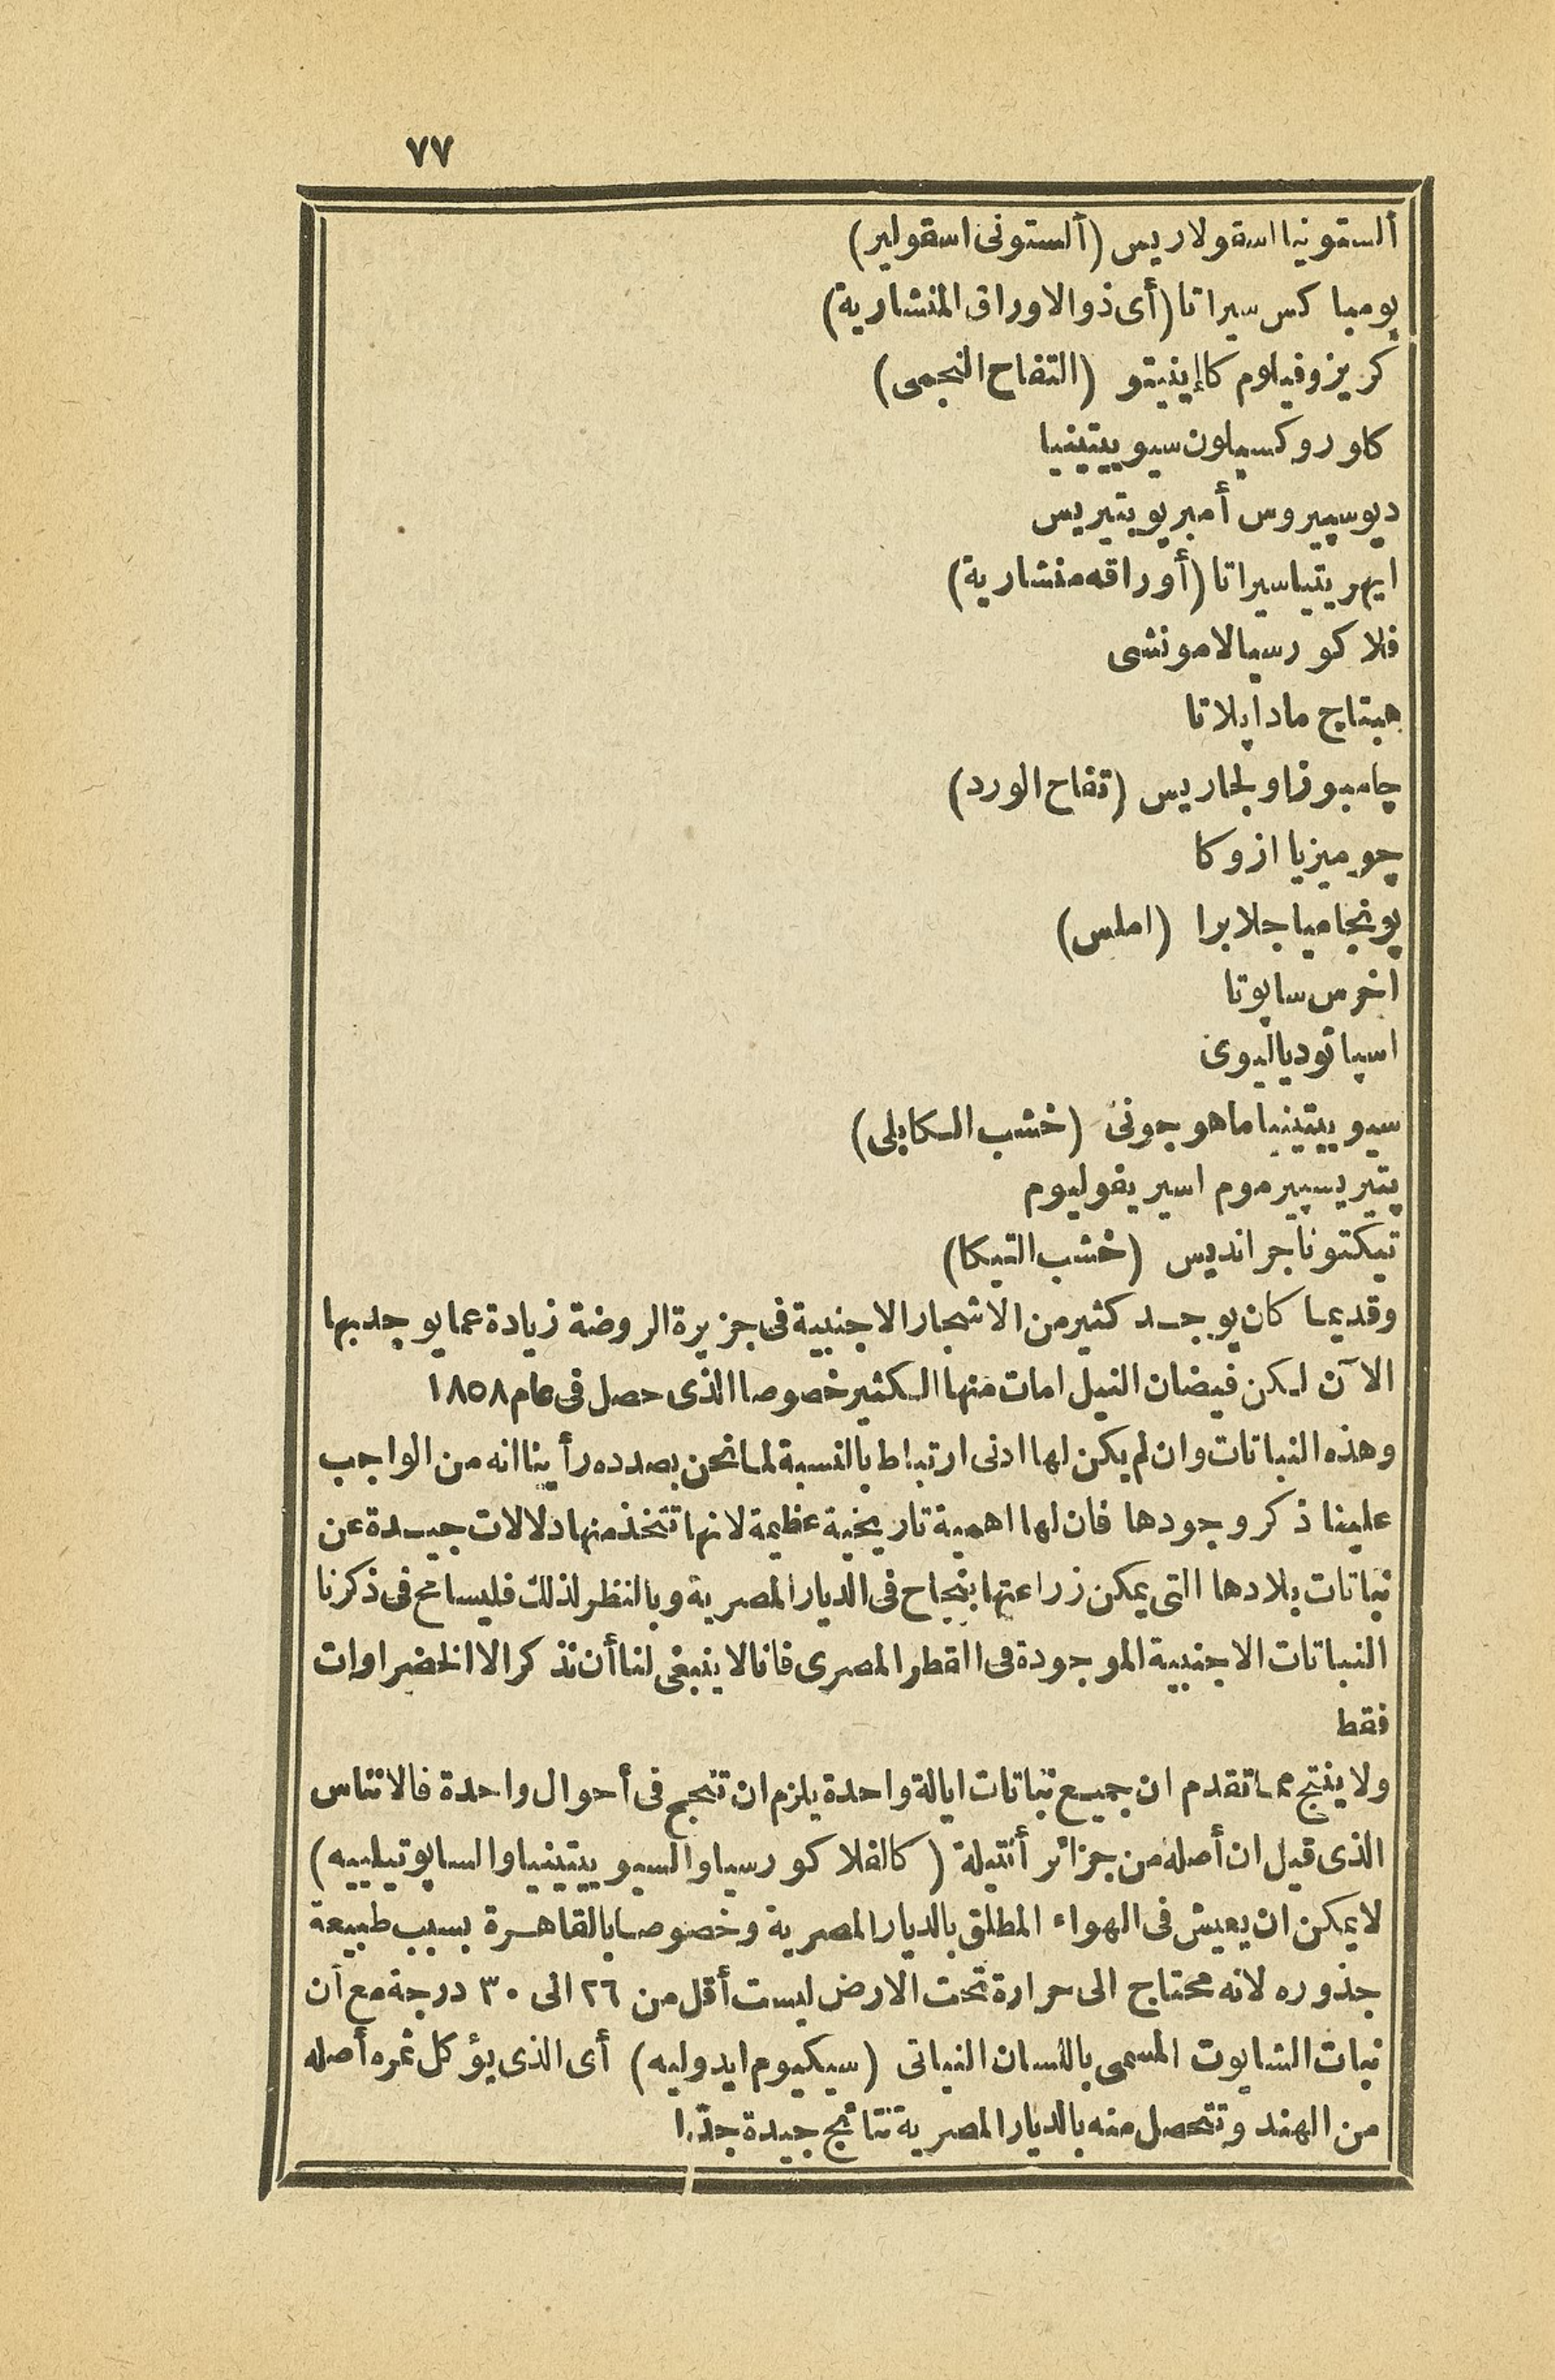 ٧٧
ألستونيا اسقولاريس (ألستونى اسقولير)
پومبا كس سيراتا (أى ذو الاوراق المنشارية)
كريزوفيلوم كاإينيتو (التفاح النجمى)
كاوروكسيلون سيوييتينيا
ديوسپيروس أمبريوپتيريس
ايهريتيا سيراتا (أوراقه منشارية)
فلاكورسيا لامونشى
هبتاچ مادابلاتا
چامبوزا ولجاريس (تفاح الورد)
چوميزيا ازوكا
پونجاميا جلابرا (املس)
اخرس ساپوتا
اسپاتوديا ليوى
سيوييتينيا ماهوجونى (خشب الكابلى)
پتيريسپيرموم اسيريفوليوم
تيكتونا جرانديس (خشب التيكا)
وقديما كان يوجد كثير من الاشجار الاجنبية فى جزيرة الروضة زيادة عما يوجد بها
الآن لكن فيضان النيل امات منها الكثير خصوصا الذى حصل فى عام ١٨٥٨
وهذه النباتات وان لم يكن لها ادنى ارتباط بالنسبة لما نحن بصدده رأينا انه من الواجب
علينا ذكر وجودها فان لها اهمية تاريخية عظيمة لانها تتخذ منها دلالات جيدة عن
نباتات بلادها التى يمكن زراعتها بنجاح فى الديار المصرية وبالنظر لذلك فليسامح فى ذكرنا
النباتات الاجنبية الموجودة فى القطر المصرى فانا لا ينبغى لنا أن نذكر الا الخضراوات
فقط
ولا ينتج مما تقدم ان جميع نباتات ايالة واحدة يلزم ان تنجح فى أحوال واحدة فالانناس
الذى قيل ان أصله من جزائر أنتيلة (كالفلاكورسيا والسيوييتينيا والساپوتيلييه)
لا يمكن ان يعيش فى الهواء المطلق بالديار المصرية وخصوصا بالقاهرة بسبب طبيعة
جذوره لانه محتاج الى حرارة تحت الارض ليست أقل من ٢٦ الى ٣٠ درجة مع أن
نبات الشايوت المسمى باللسان النباتى (سيكيوم ايدوليه) أى الذى يؤكل ثمره أصله
من الهند وتتحصل منه بالديار المصرية نتائج جيدة جدّا